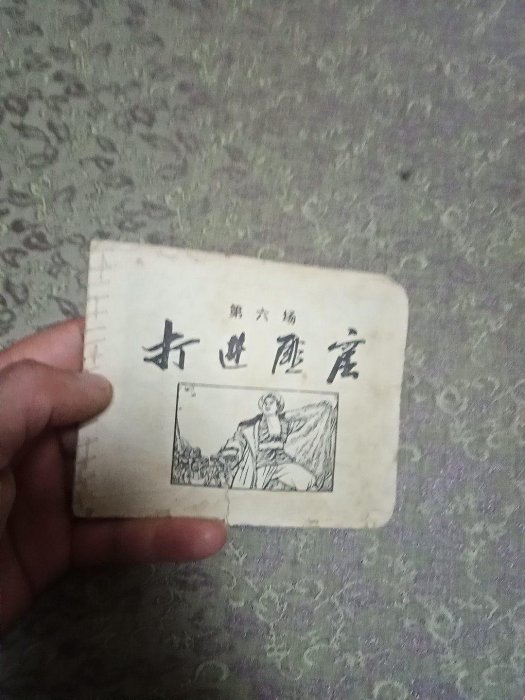 第六场
打进匪窟